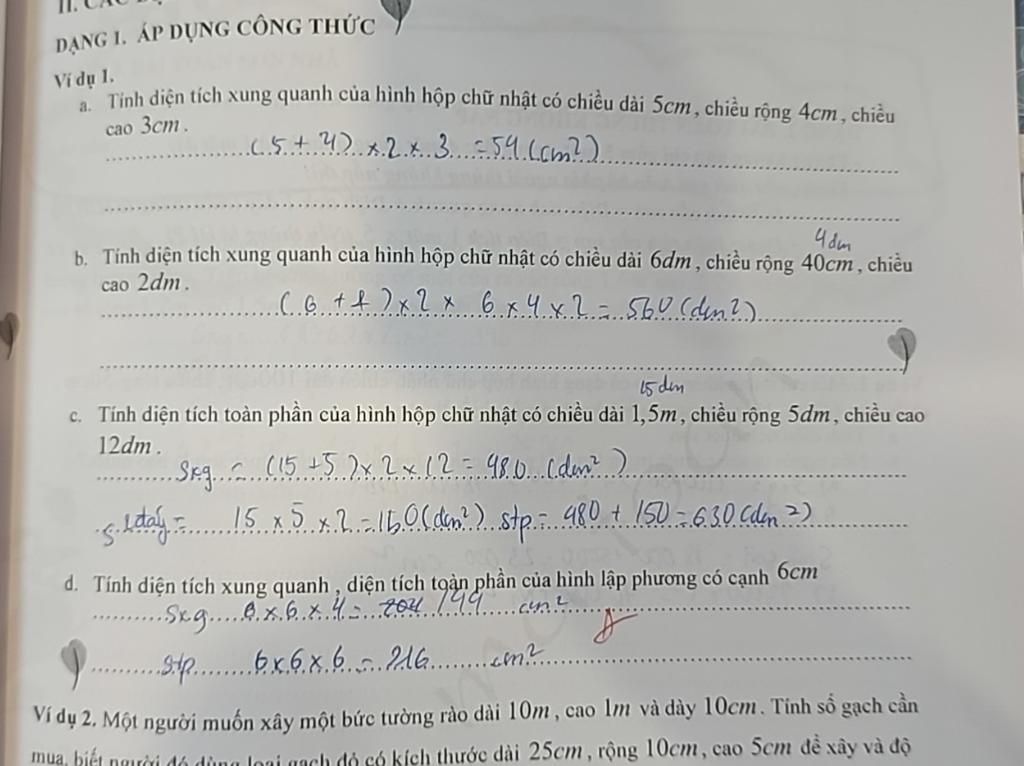 II. CÁC
DẠNG 1. ÁP DỤNG CÔNG THỨC
Ví dụ 1.
a. Tính diện tích xung quanh của hình hộp chữ nhật có chiều dài 5cm, chiều rộng 4cm, chiều
cao 3cm.
(5 + 4) × 2 × 3 = 54 (cm²)
4dm
b. Tính diện tích xung quanh của hình hộp chữ nhật có chiều dài 6dm, chiều rộng 40cm, chiều
cao 2dm.
(6 + 4) × 2 × 6 × 4 × 2 = 560 (dm²)
15 dm
c. Tính diện tích toàn phần của hình hộp chữ nhật có chiều dài 1,5m, chiều rộng 5dm, chiều cao
12dm.
Sxq = (15 + 5) × 2 × 12 = 480 (dm²)
S 2đáy = 15 × 5 × 2 = 150 (dm²) stp = 480 + 150 = 630 (dm²)
d. Tính diện tích xung quanh, diện tích toàn phần của hình lập phương có cạnh 6cm
Sxq 6 × 6 × 4 = 144 cm²
Stp 6 × 6 × 6 = 216 cm²
Ví dụ 2. Một người muốn xây một bức tường rào dài 10m, cao 1m và dày 10cm. Tính số gạch cần
mua, biết người đó dùng loại gạch đỏ có kích thước dài 25cm, rộng 10cm, cao 5cm để xây và độ